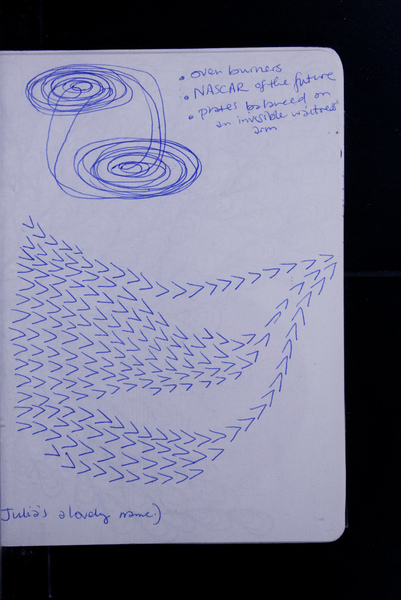 • oven burners
• NASCAR of the future
• plates balanced on
an invisible waitress'
arm
Julia's a lovely name.)